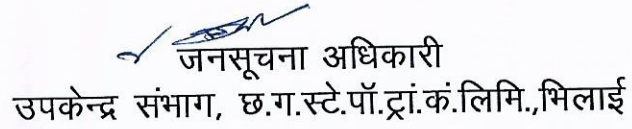 जनसूचना अधिकारी
उपकेन्द्र संभाग, छ.ग.स्टे.पॉ.ट्रां.कं.लिमि.,भिलाई